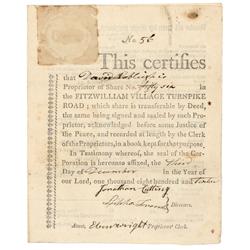 No. 56
This certifies
that David
Proprietor of Share No. fifty six
in the FITZWILLIAM VILLAGE TURNPIKE
ROAD; which is transferable by Deed,
the same being signed and sealed by such Pro-
prietor, acknowledged before some Justice of
the Peace, and recorded at length by the Clerk
of the Proprietors, in a book kept for that purpose.
In Testimony whereof, the seal of the Cor-
poration is hereunto affixed, the Third
Day of December in the Year of
our Lord, one thousand eight hundred and
Jonathan Cutting
Directors.
Attest, Proprietors' Clerk.